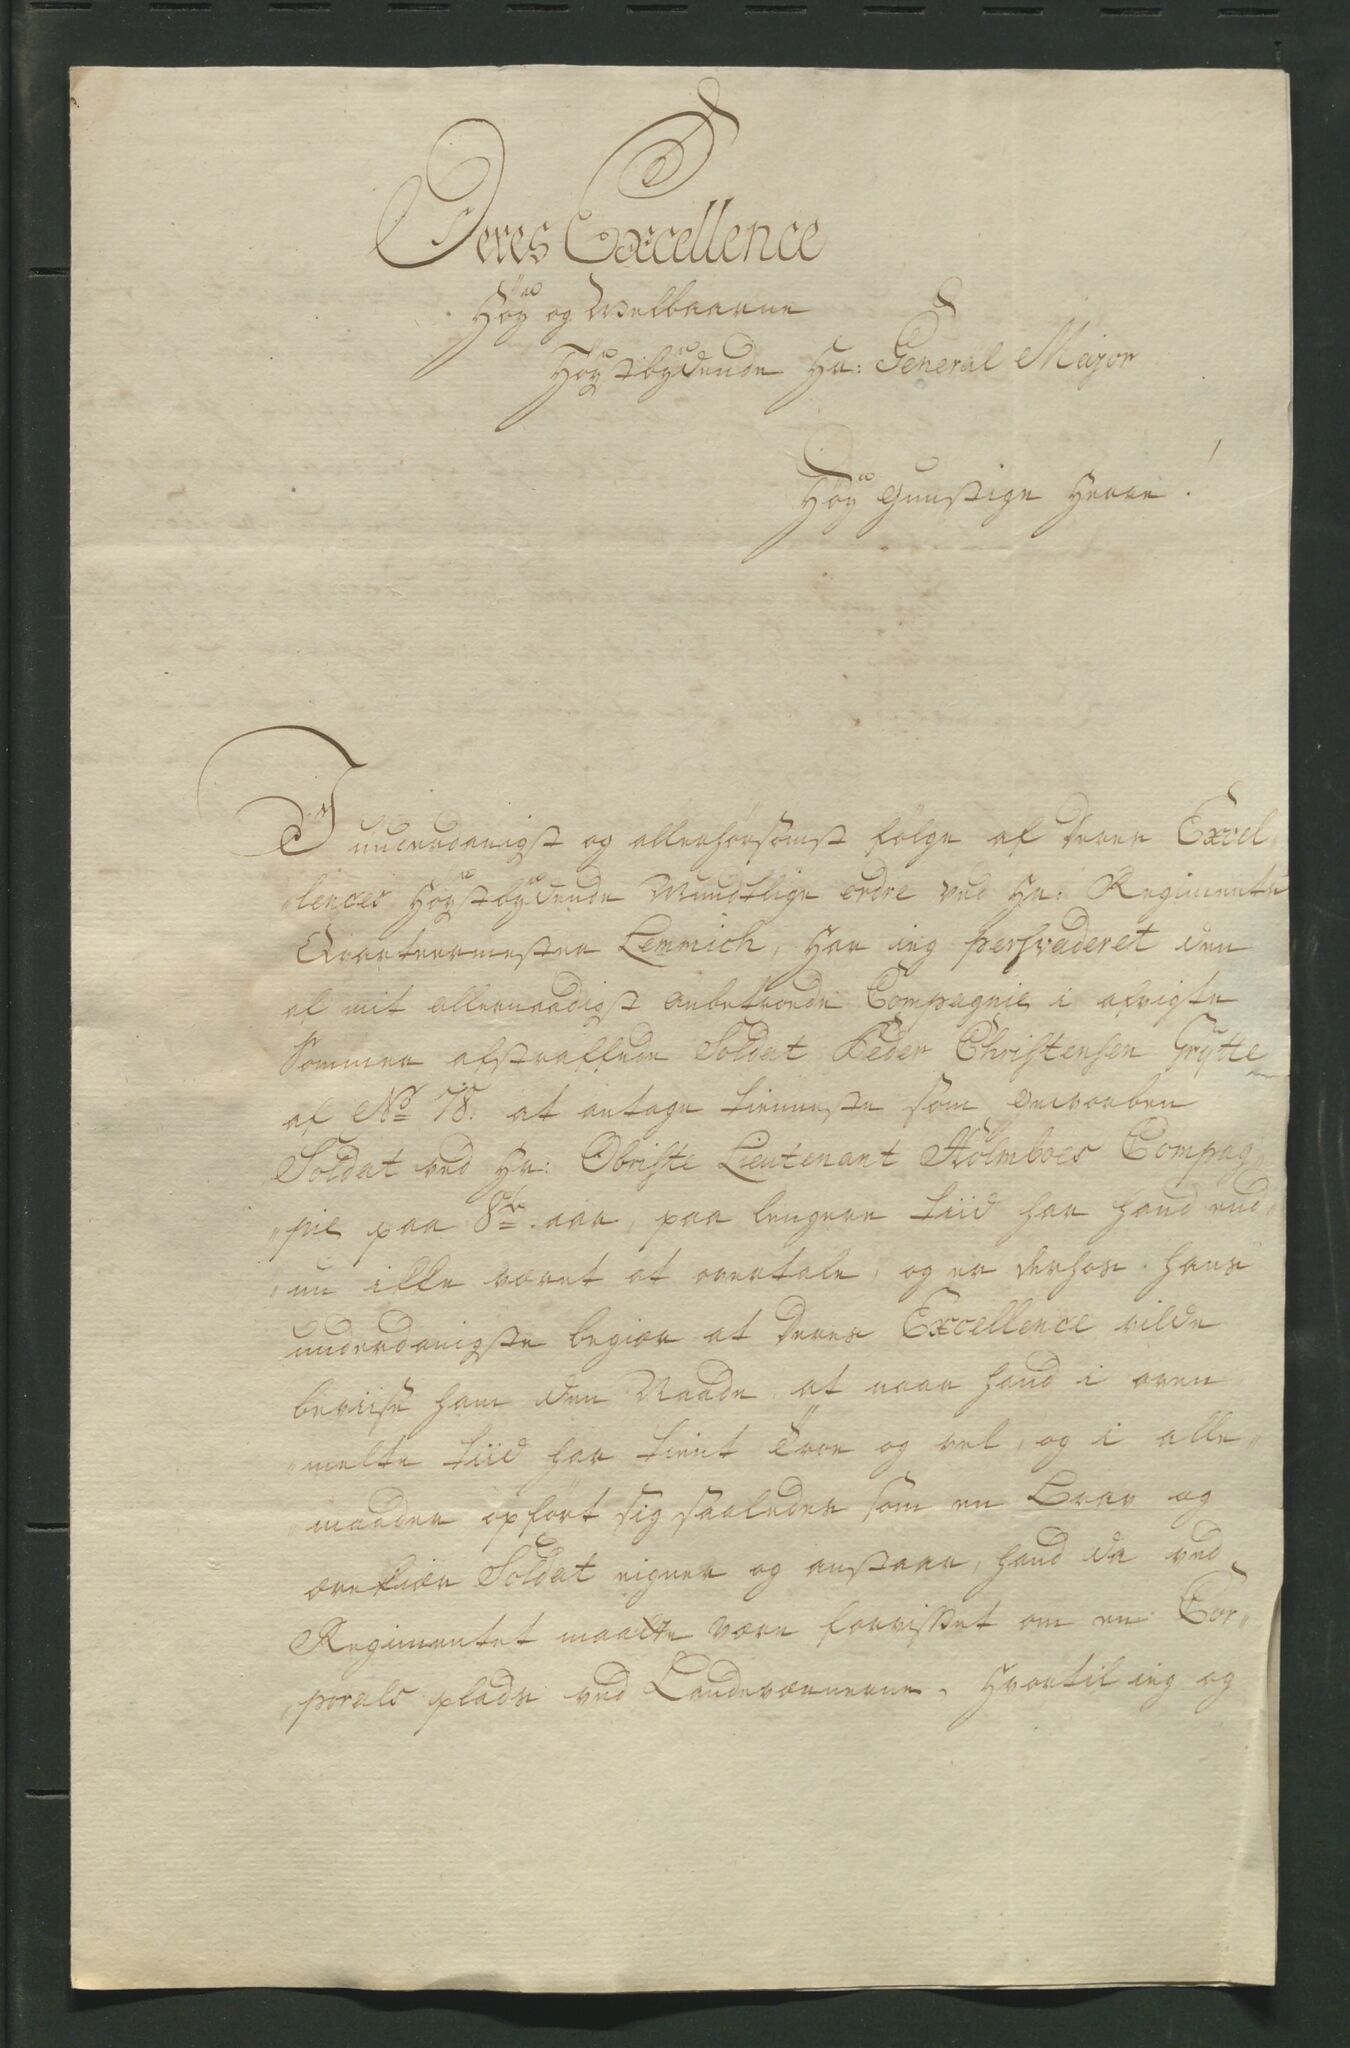 Deres Excellence
Höy og Welbaarne
Höystbydende Hr: General Major
Höy gunstige Herre!
I underdanigst og allerhörsomst fölge af Deres Excel„
„lences Höystbydende Mundtlige ordre ved Hr: Regiments
Qvarteermester Lemmich, har ieg persvaderet den
af mit allernaadigst anbetroede Compagnie i afvigte
Sommer afstraffede Soldat Peder Christensen Grytte
af No 78. at antage tienneste som gevorben
Soldat ved Hr: Obriste Lieutenant Holmboes Compag„
„nie paa 8te aar, paa lengere tiid har hand end„
„nu ikke været at overtale, og er derhos hans
underdanigste begiær at Deres Excellence vilde
beviise ham den Naade, at naar hand i oven„
„melte tiid har tient troe og vel, og i alle„
„maader opfört sig saaledes som en brav og
ærekiær Soldat eigner og anstaaer, hand da ved
Regimentet maatte være forvisset om en Cor„
„porals plads ved Landeværnerne, hvortil ieg og